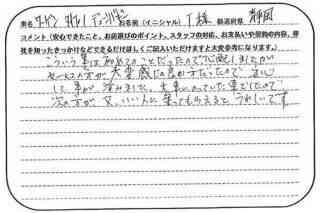 お名前（イニシャル） T 様 都道府県 静岡
コメント（安心できたこと、お店選びのポイント、スタッフの対応、お支払いや契約の内容、弊
社を知ったきっかけなどできるだけ詳しくご記入いただけますと大変参考になります。）
こういう事は初めてのことだったので心配しましたが
セールスの方が大変感じの良い方だったので、安心
した事が済みました。大事にのっていた車でしたので
次の方が又、いい人に乗ってもらえると うれしいです